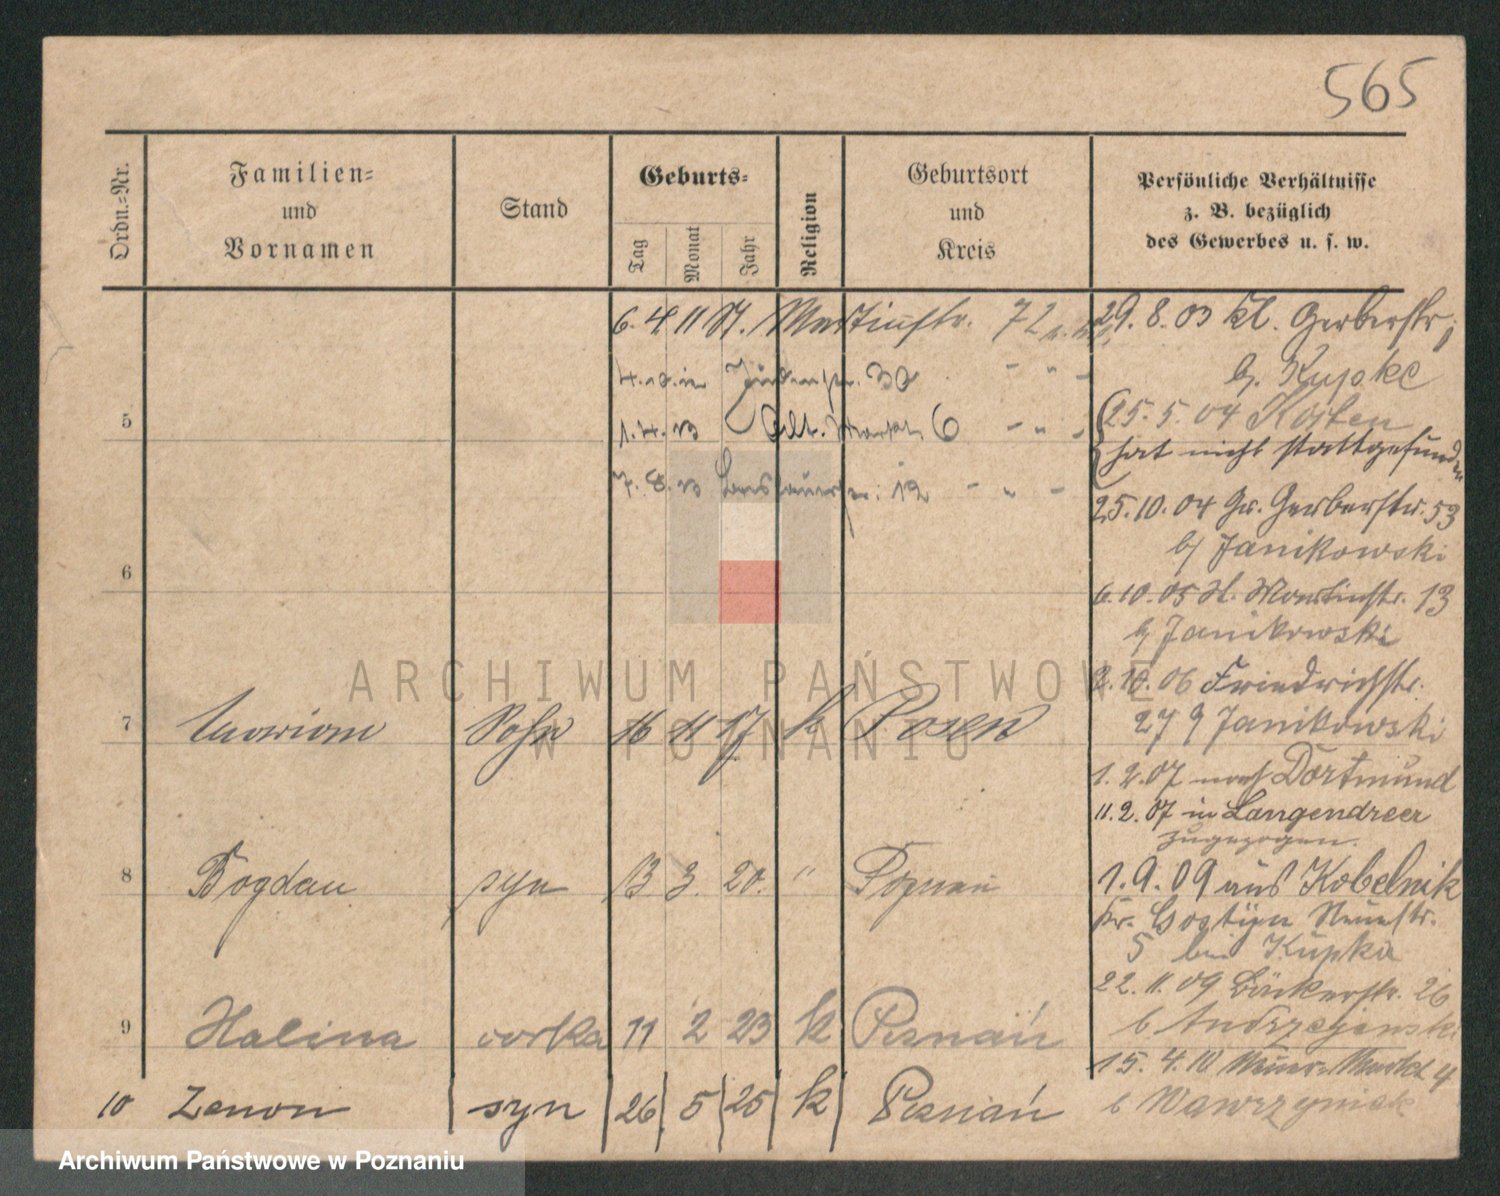 565
Ordn.-Nr.
Familien-
und
Vornamen
Stand
Geburts-
Tag
Monat
Jahr
Religion
Geburtsort
und
Kreis
Persönliche Verhältnisse
z. B. bezüglich
des Gewerbes u. s. w.
6. 4 11 St. Martinstr. 72
Jüdenstr. 30
1. 4. 13 Alt. Markt 6
7. 8. 13 Breslauerstr. 12
5
6
7 Marian Sohn 16 11 17 k Posen
8 Bogdan syn 13 3. 20. " Poznań
9 Halina corka 11 2 23 k Poznań
10 Zenon syn 26 5 25 k Poznań
29. 8. 03 Kl. Gerberstr.
b. Kupke
25. 5. 04 Kosten
hat nicht stattgefunden
25. 10. 04 Gr. Gerberstr. 53
b/ Janikowski
6. 10. 05 St. Martinstr. 13
b/ Janikowski
2. 10. 06 Friedrichstr.
27 b/ Janikowski
1. 2. 07 nach Dortmund
11. 2. 07 in Langendreer
zugezogen.
1. 9. 09 aus Kobelnik
Kr. Gostyn Neuestr.
5 bei Kupka
22. 11. 09 Bäckerstr. 26
b
15. 4. 10 Markt 4
b Wawrzyniak
ARCHIWUM PAŃSTWOWE
W POZNANIU
Archiwum Państwowe w Poznaniu